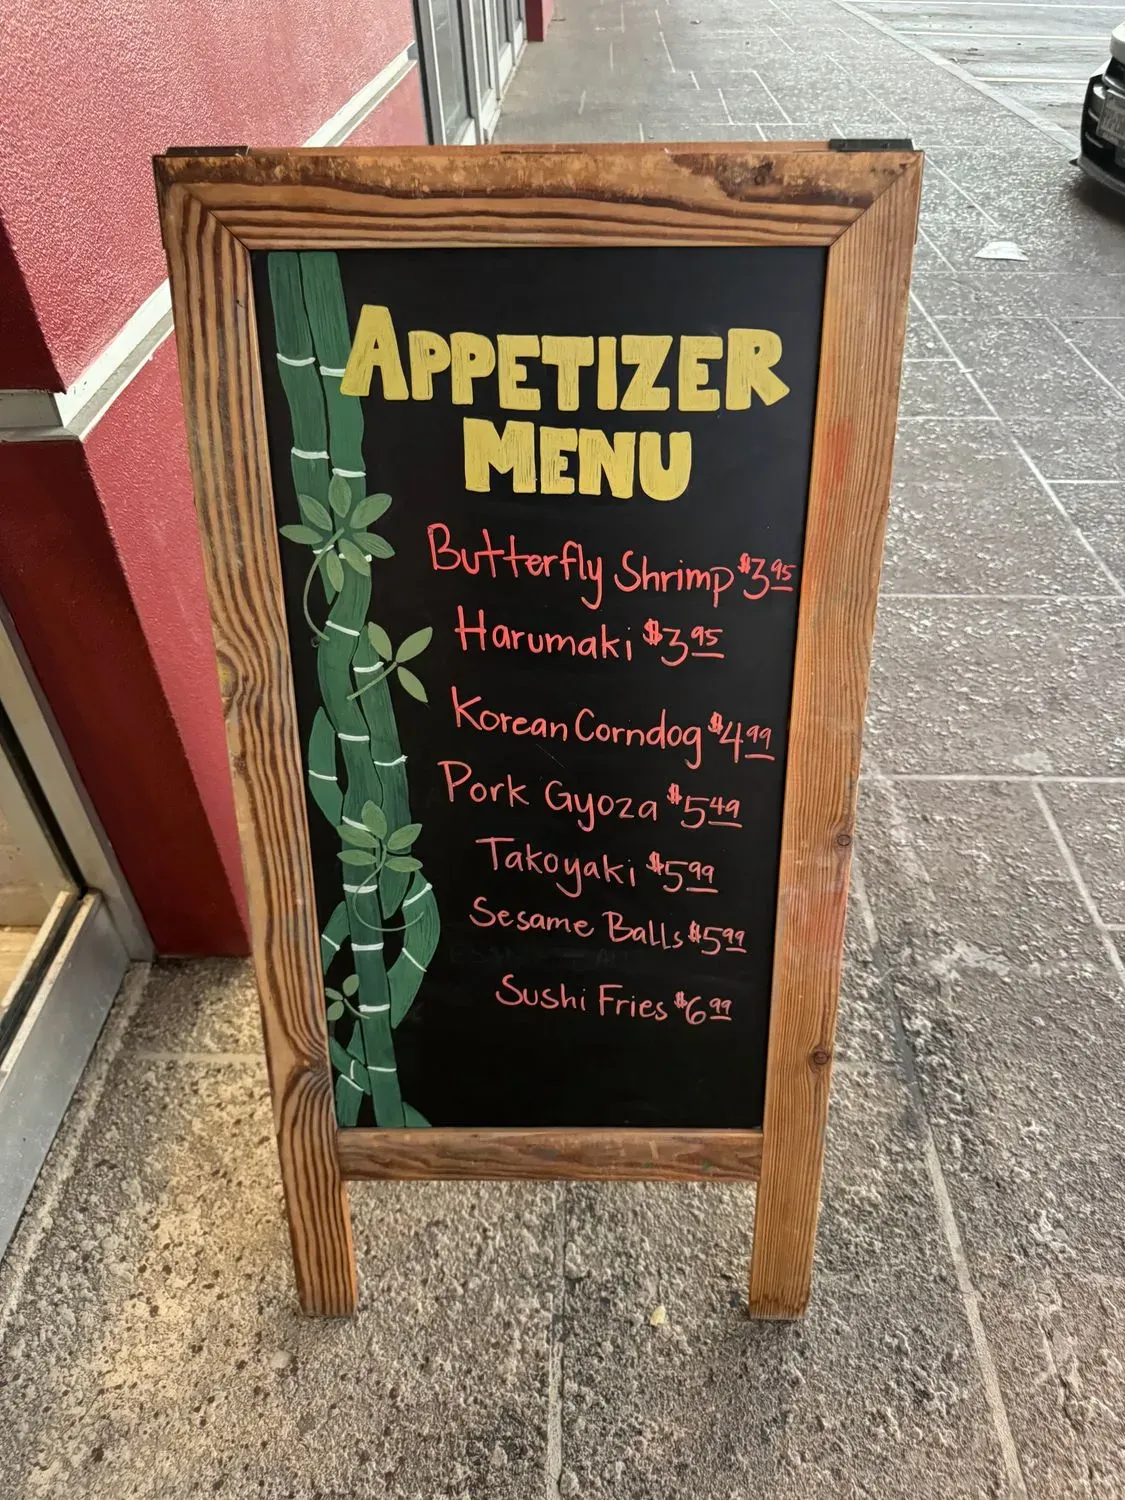 APPETIZER
MENU
Butterfly Shrimp $3.95
Harumaki $3.95
Korean Corndog $4.99
Pork Gyoza $5.49
Takoyaki $5.99
Sesame Balls $5.99
Sushi Fries $6.99